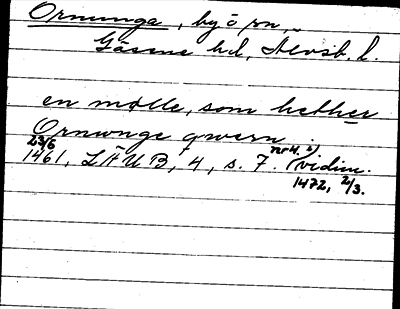 Ornunga, by o sn,
Gäsene hd, Älvsb. l.
en mølle, som hether
Ornwnge qwern.
23/6
1461, LÄUB, 4, s. 7. nr 4. (vidim.
1472, 2/3.